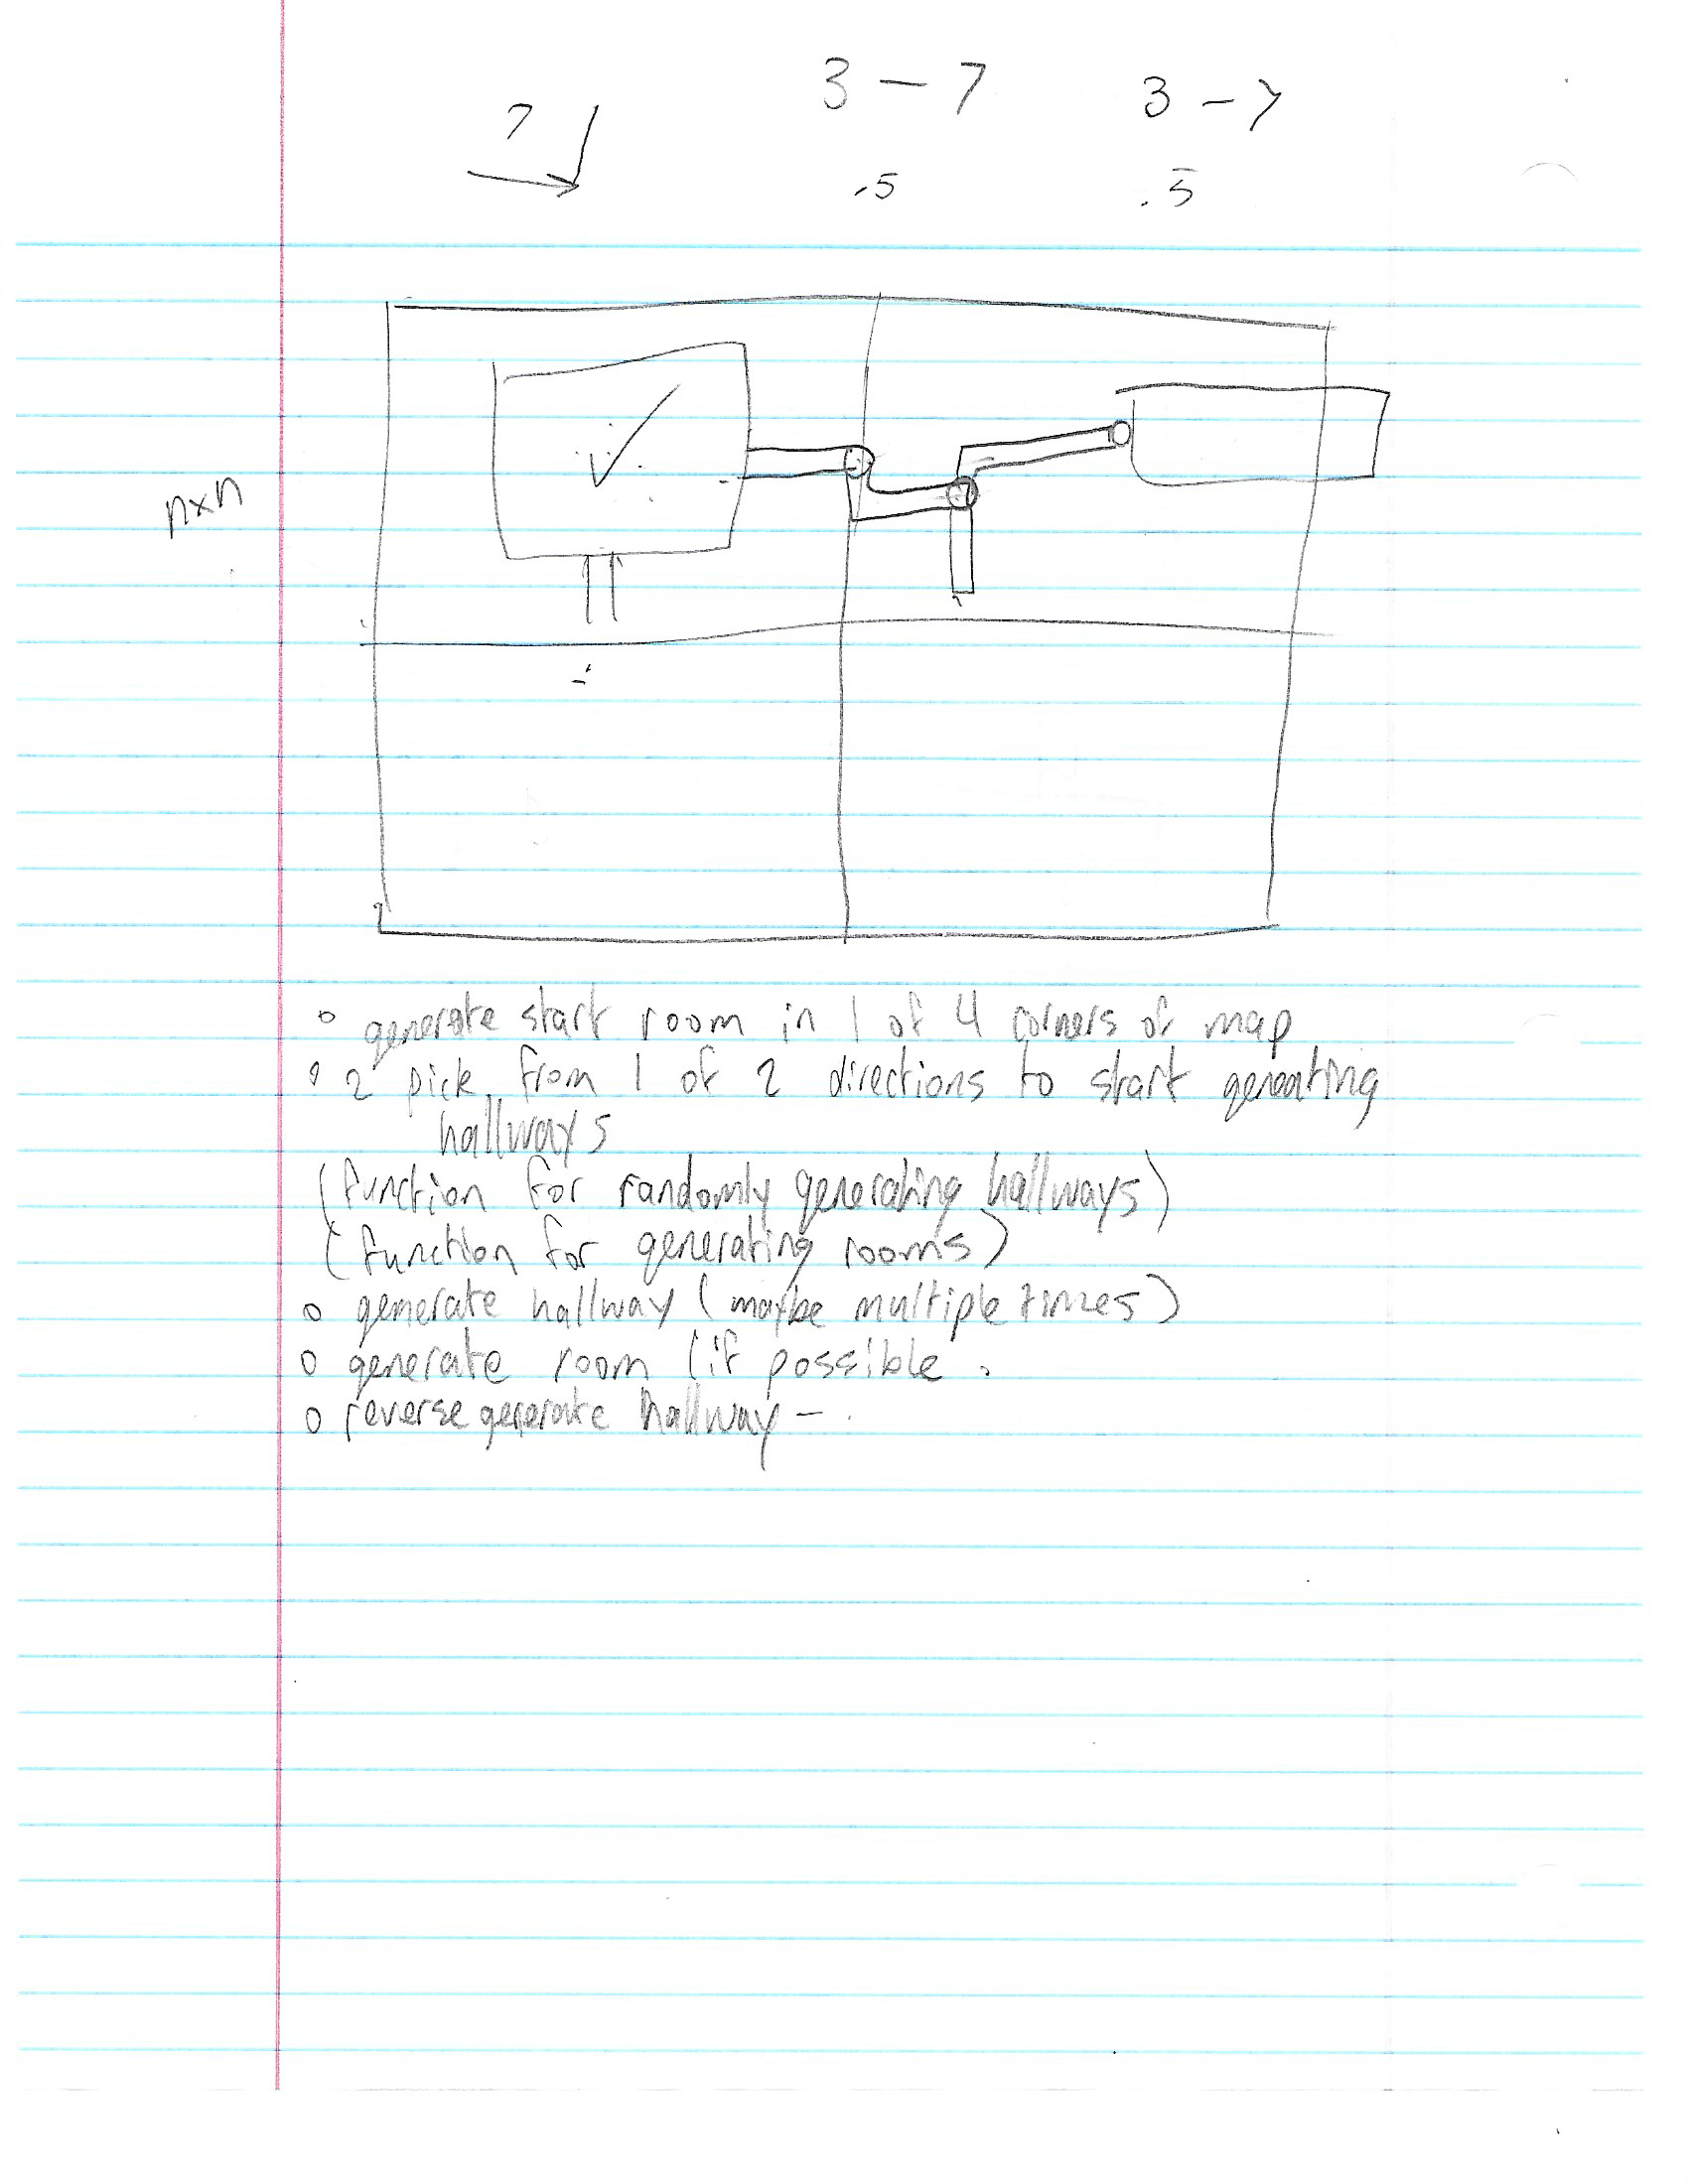 3 - 7
3 - 7
?
.5
.5
nxn
generate start room in 1 of 4 corners of map
2 pick from 1 of 2 directions to start generating
hallways
(function for randomly generating hallways)
(function for generating rooms)
o generate hallway (maybe multiple times)
o generate room (if possible .
o reverse generate hallway -